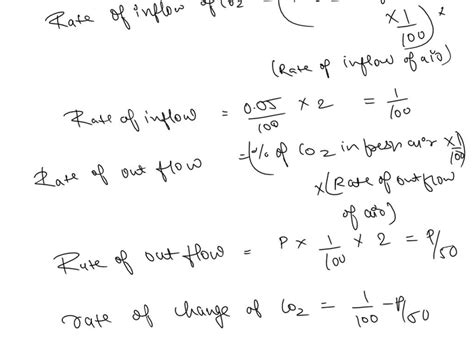 Rate of inflow of CO2 = (
× 1/100) ×
(Rate of inflow of air)
Rate of inflow = 0.05/100 × 2 = 1/100
Rate of out flow = (% of CO2 in fresh air × 1/100)
× (Rate of outflow
of air)
Rate of out flow = P × 1/100 × 2 = P/50
rate of change of CO2 = 1/100 - P/50